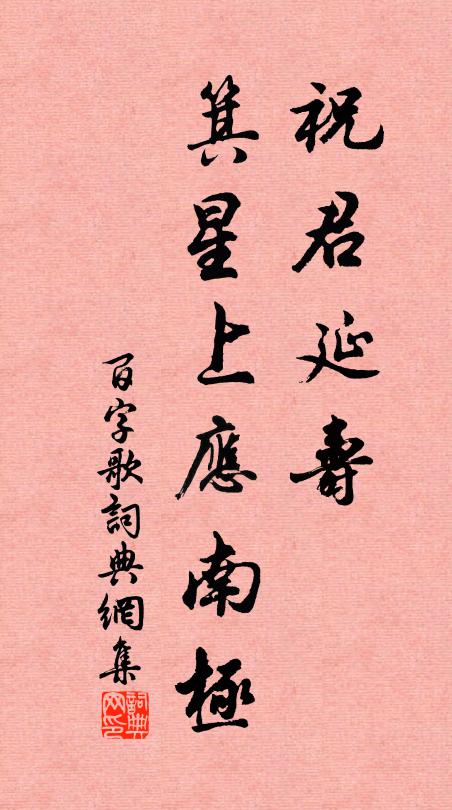 祝君延壽
箕星上應南極
百字歌詞典網集
詞典网印